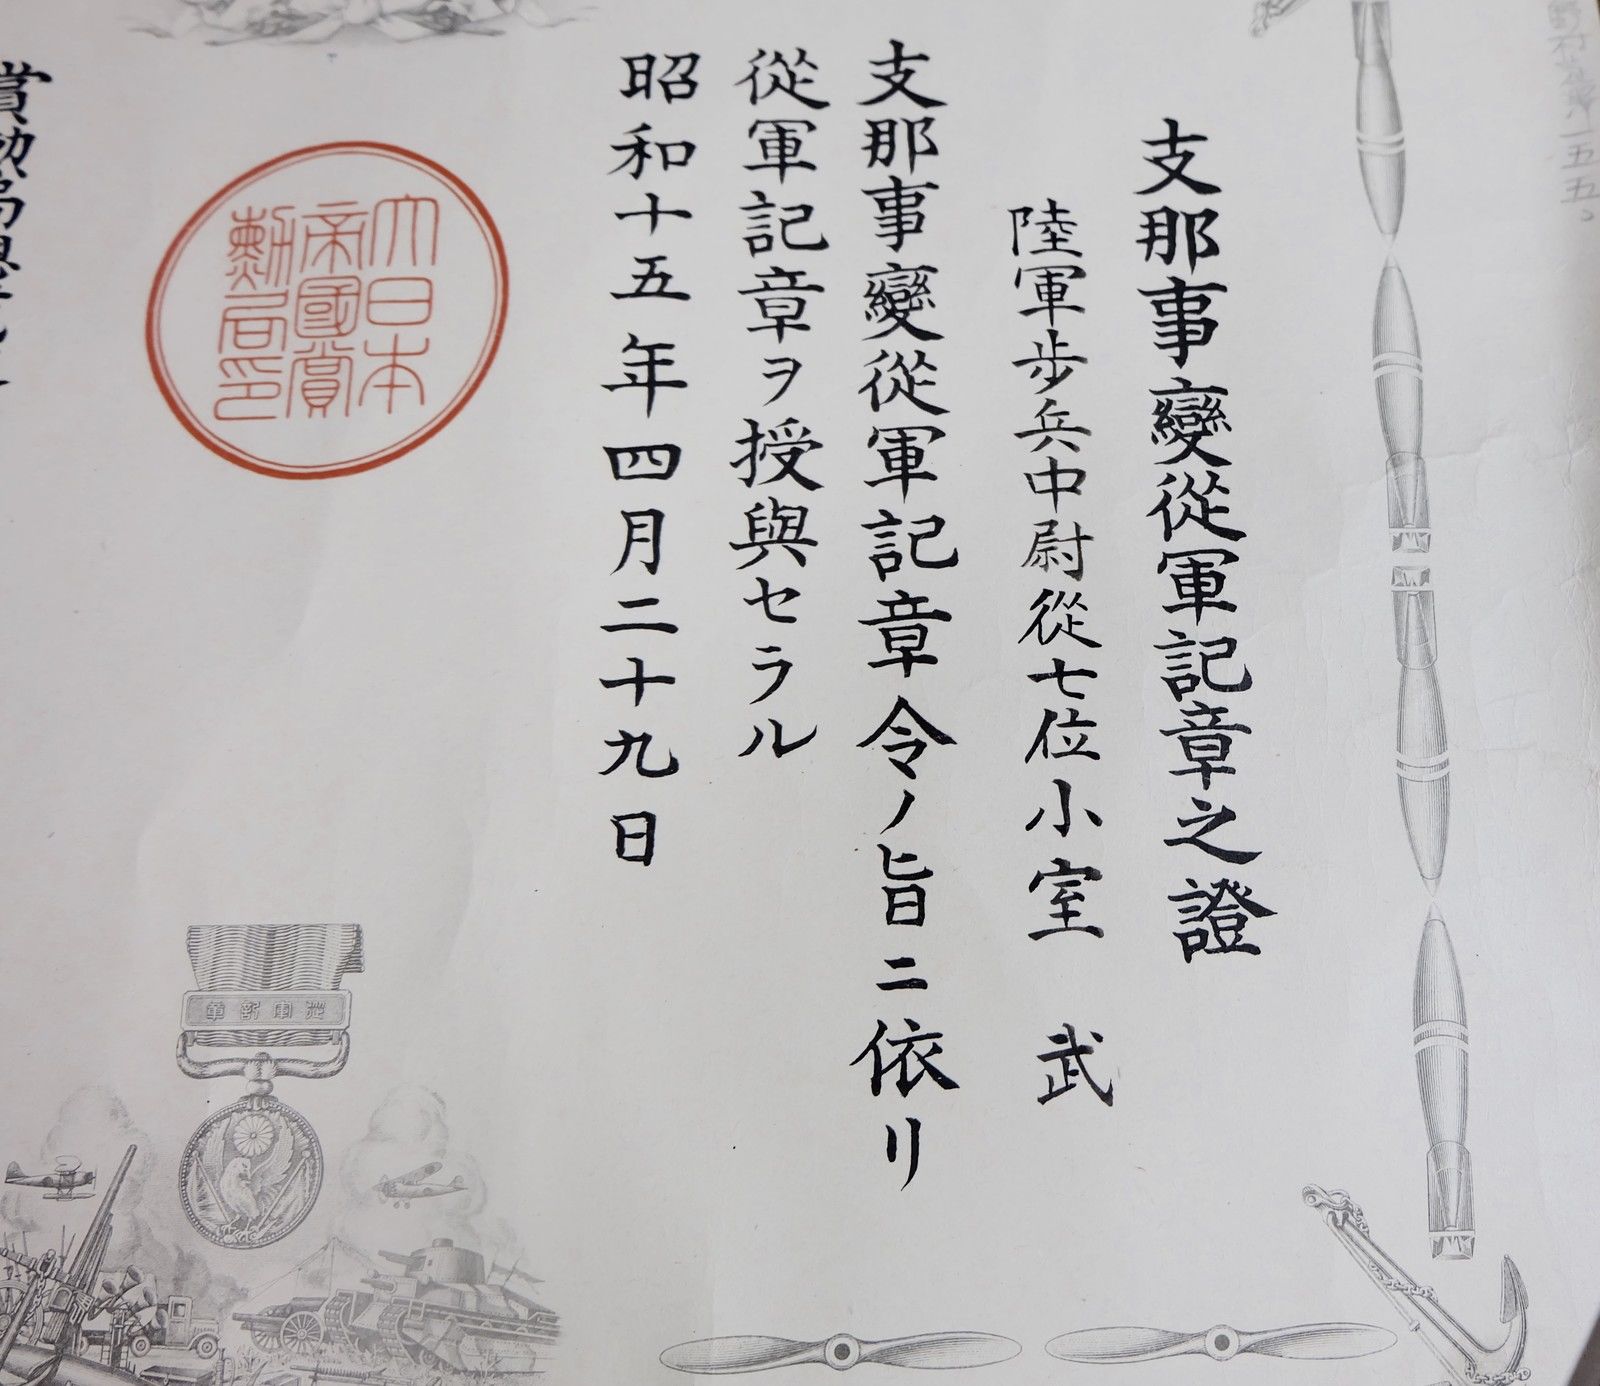 支那事變從軍記章之證
陸軍步兵中尉從七位小室 武
支那事變從軍記章令ノ旨ニ依リ
從軍記章ヲ授與セラル
昭和十五年四月二十九日
大日本
帝國賞
勳局印
賞勳局
從軍記章
一五五